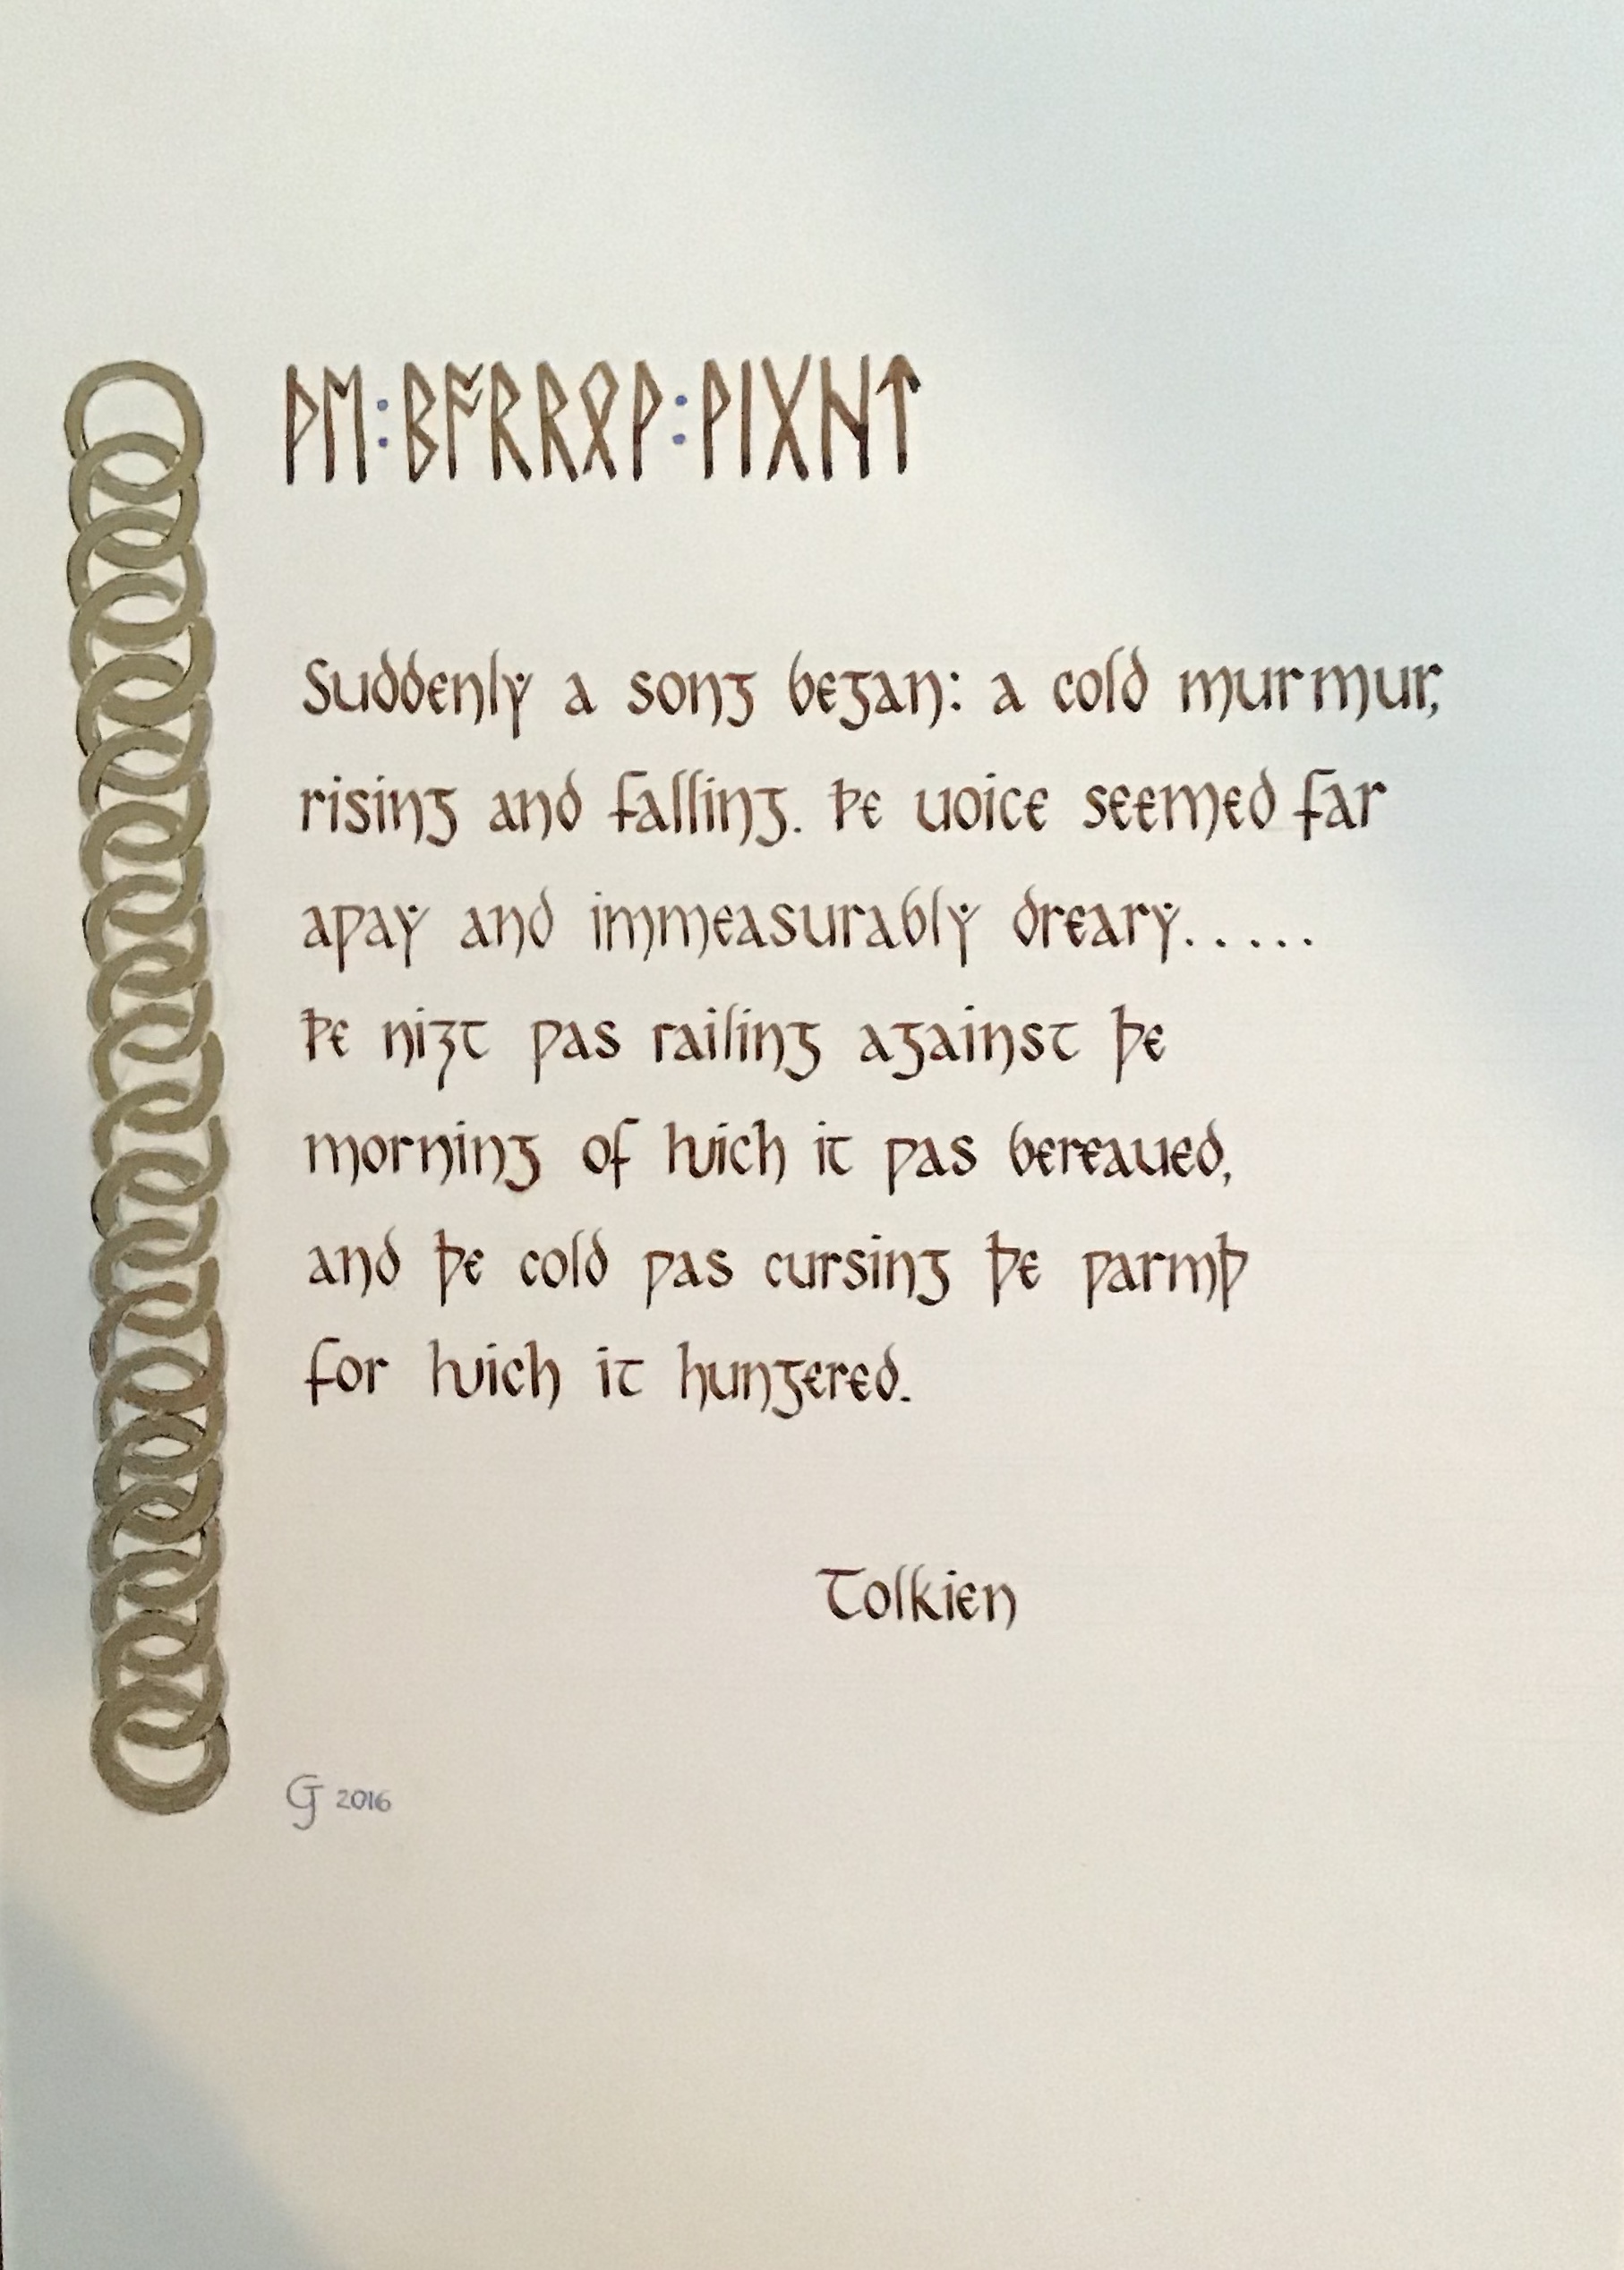 ᚦᛖ:ᛒᚪᚱᚱᛟᚹ:ᚹᛁᚷᚻᛏ
Suddenly a song began: a cold murmur,
rising and falling. Þe uoice seemed far
aƿay and immeasurably dreary.....
Þe niȝt ƿas railing against þe
morning of ƕich it ƿas bereaued,
and þe cold ƿas cursing þe ƿarmþ
for ƕich it hungered.
Tolkien
GJ 2016